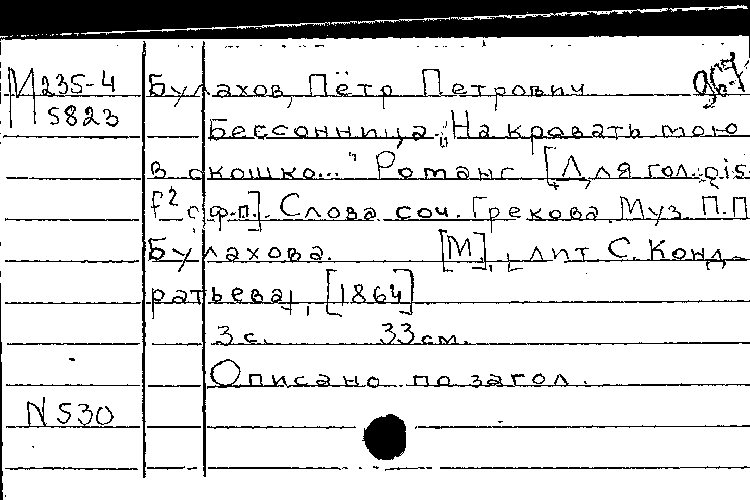 М 235-4 Булахов, Пётр Петрович 967
5823 Бессонница. "На кравать мою
в окошко..." Романс [Для гол. dis-
f² с ф.п.]. Слова соч. Грекова. Муз. П.П.
Булахова. [М]., [лит. С. Конд-
ратьева], [1864]
3 с. 33 см.
Описано по загол.
N 530